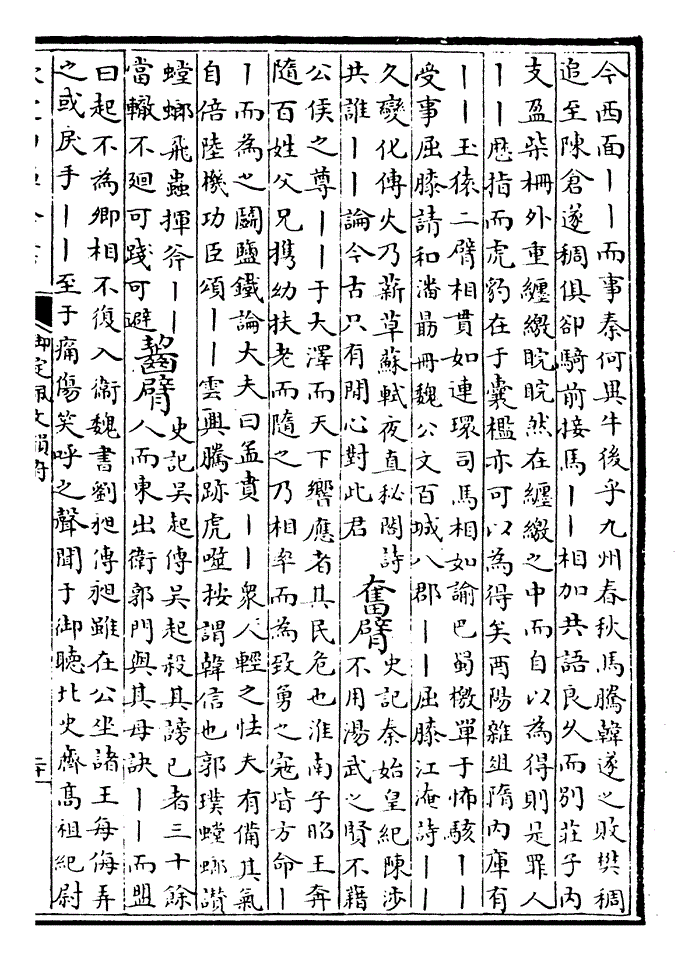 今西面丨丨而事秦何異牛後乎九州春秋馬騰韓遂之敗樊稠
追至陳倉遂稠俱卻騎前接馬丨丨相加共語良久而別莊子内
支盈柴柵外重纒繳睆睆然在纒繳之中而自以為得則是罪人
丨丨歴指而虎豹在于囊檻亦可以為得矣酉陽雜俎隋内庫有
丨丨玉猿二臂相貫如連環司馬相如諭巴蜀檄單于怖駭丨丨
受事屈膝請和潘朂冊魏公文百城八郡丨丨屈膝江淹詩丨丨
久變化傳火乃薪草蘇軾夜直秘閣詩
共誰丨丨論今古只有閒心對此君
奮臂
史記秦始皇紀陳涉
不用湯武之賢不藉
公侯之尊丨丨于大澤而天下響應者其民危也淮南子昭王奔
隨百姓父兄攜幼扶老而隨之乃相率而為致勇之寇皆方命丨
丨而為之鬭鹽鐵論大夫曰孟賁丨丨衆人輕之怯夫有備其氣
自倍陸機功臣頌丨丨雲興騰跡虎噬按謂韓信也郭璞螳螂讚
螳螂飛蟲揮斧丨丨
當轍不廻可踐可避
齧臂
史記吳起傳吳起殺其謗已者三十餘
人而東出衛郭門與其母訣丨丨而盟
曰起不為卿相不復入衛魏書劉昶傳昶雖在公坐諸王每侮弄
之或戾手丨丨至于痛傷笑呼之聲聞于御聽北史齊高祖紀尉
御定佩文韻府